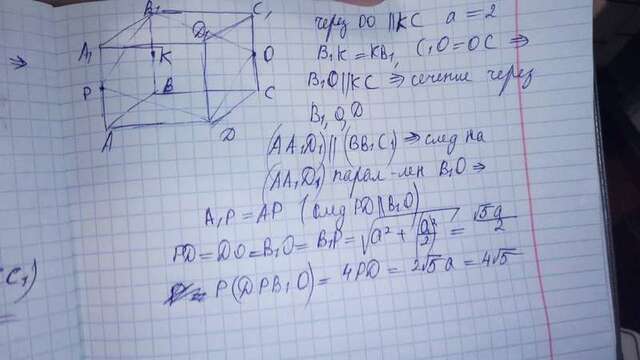 ⇒
B₁ C₁
через DO || KC a = 2
A₁ D₁
K O
B₁K = KB₁, C₁O = OC ⇒
P B C
B₁O || KC ⇒ сечение через
A D
B₁, O, D
(AA₁D₁) || (BB₁C₁) ⇒ след на
(AA₁D₁) парал-лен B₁O ⇒
A₁P = AP (след PD || B₁O)
PD = DO = B₁O = B₁P = √(a² + (a/2)²) = √5a/2
C₁)
P(DPB₁O) = 4PD = 2√5a = 4√5